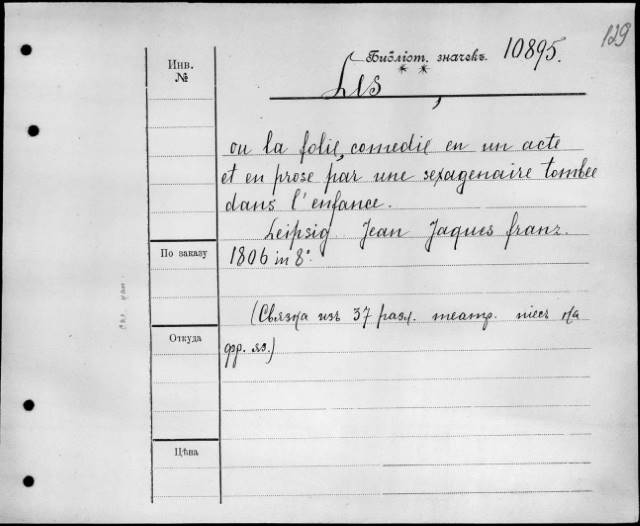 129
Библіот. значекъ. 10895.
Les * *,
ou la folie, comedie en un acte
et en prose par une sexagenaire tombee
dans l'enfance.
Leipsig. Jean Jaques franz.
1806 in 8°.
(Связка изъ 37 разл. театр. пiесъ на
фр. яз.)
Инв.
№
По заказу
Откуда
Цѣна